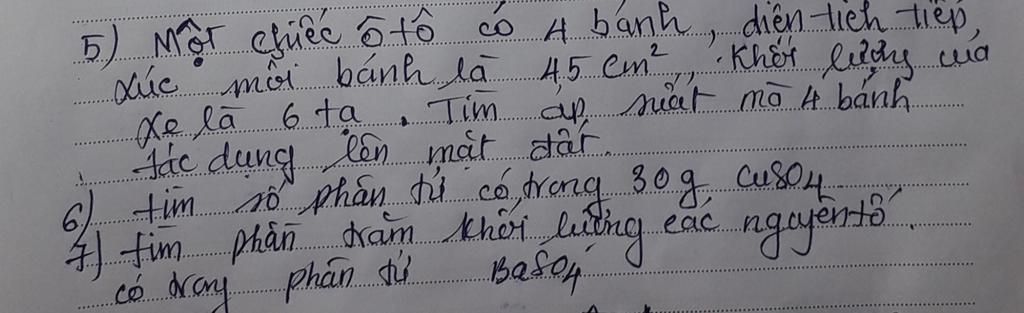 5) Một chiếc ô tô có 4 bánh, diện tích tiếp
xúc mỗi bánh là 45 cm², Khối lượng của
xe là 6 tạ. Tìm áp suất mà 4 bánh
tác dụng lên mặt đất.
6) tìm số phân tử có trong 30g CuSO4
7) tìm phần trăm khối lượng các nguyên tố
có trong phân tử BaSO4